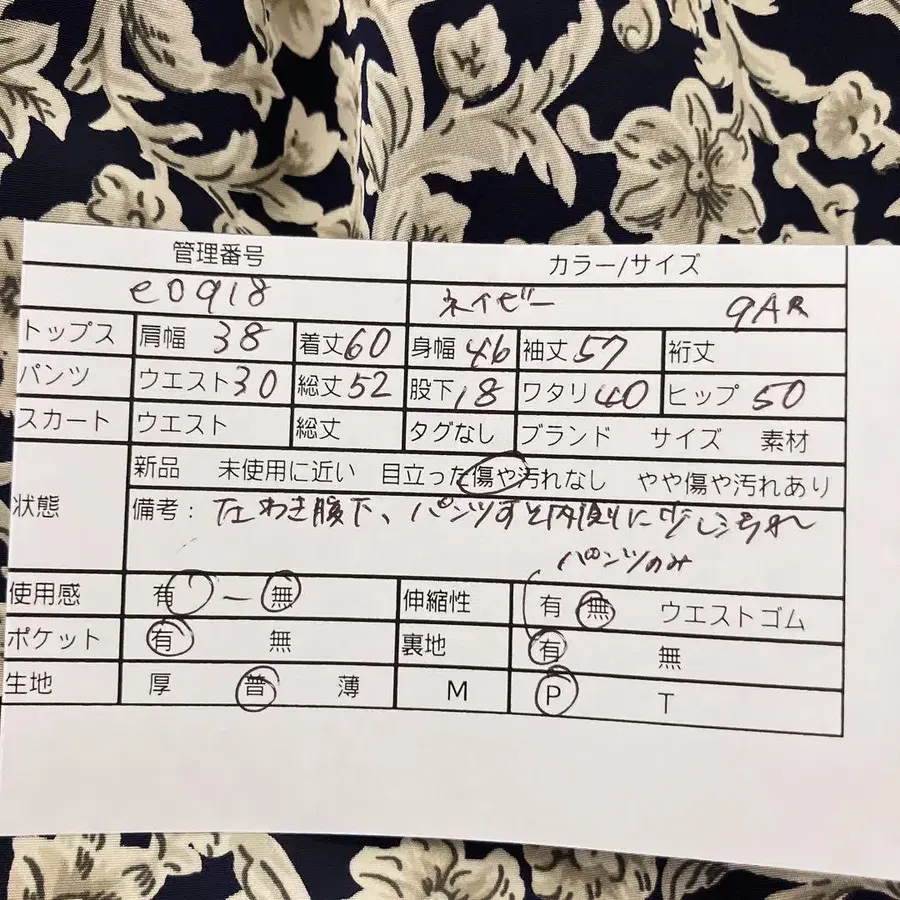 管理番号 カラー/サイズ
e0918 ネイビー 9AR
トップス 肩幅 38 着丈60 身幅 46 袖丈57 裄丈
パンツ ウエスト30 総丈52 股下18 ワタリ40 ヒップ 50
スカート ウエスト 総丈 タグなし ブランド サイズ 素材
新品 未使用に近い 目立った傷や汚れなし やや傷や汚れあり
状態 備考: 左わき腋下、パンツすそ内側に少し汚れ
パンツのみ
使用感 有 ー 無 伸縮性 有 無 ウエストゴム
ポケット 有 無 裏地 有 無
生地 厚 普 薄 M P T